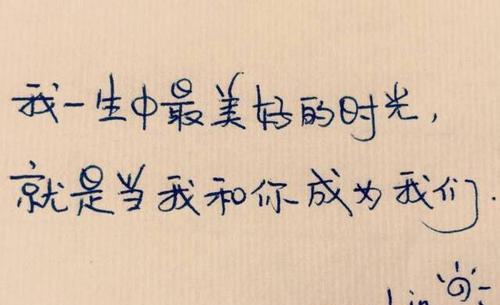 我一生中最美好的时光,
就是当我和你成为我们.
Lin